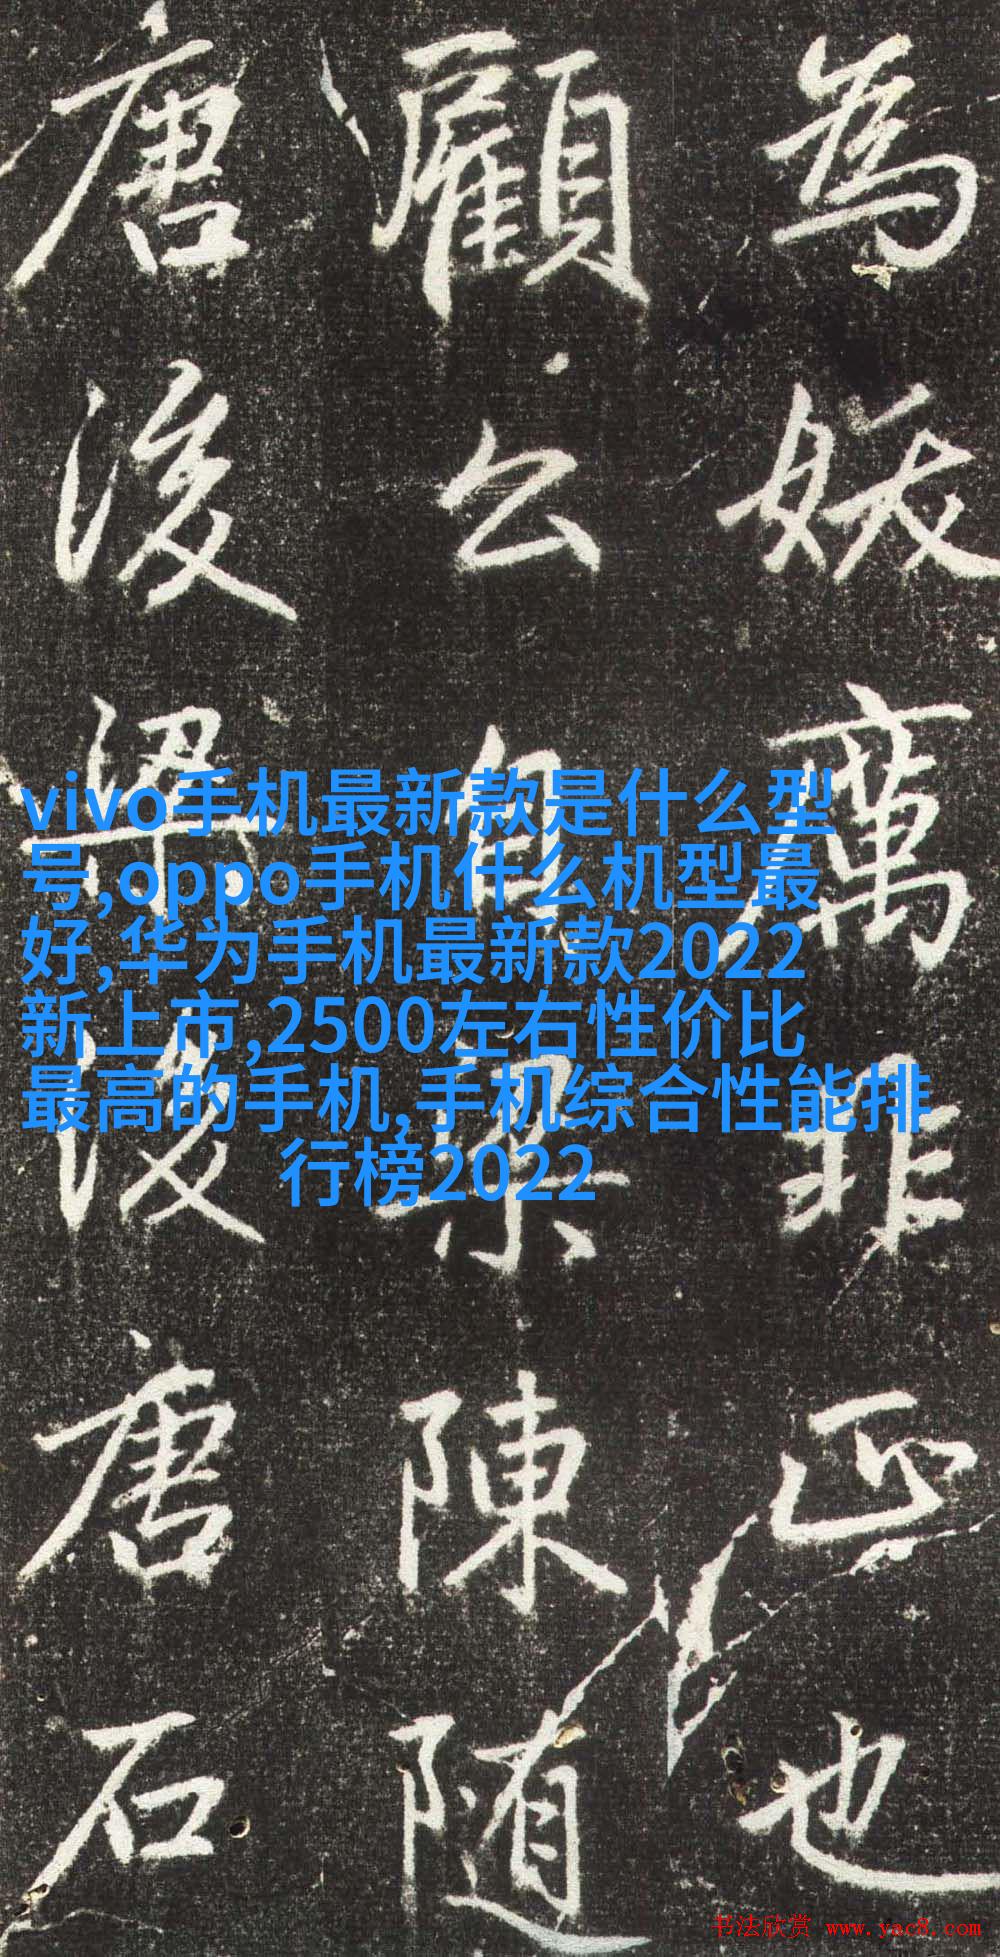 為妖厲非正也
顧公自梁陳随
唐後梁後唐石
vivo手机最新款是什么型
号,oppo手机什么机型最
好,华为手机最新款2022
新上市,2500左右性价比
最高的手机,手机综合性能排
行榜2022
书法欣赏 www.yac8.com